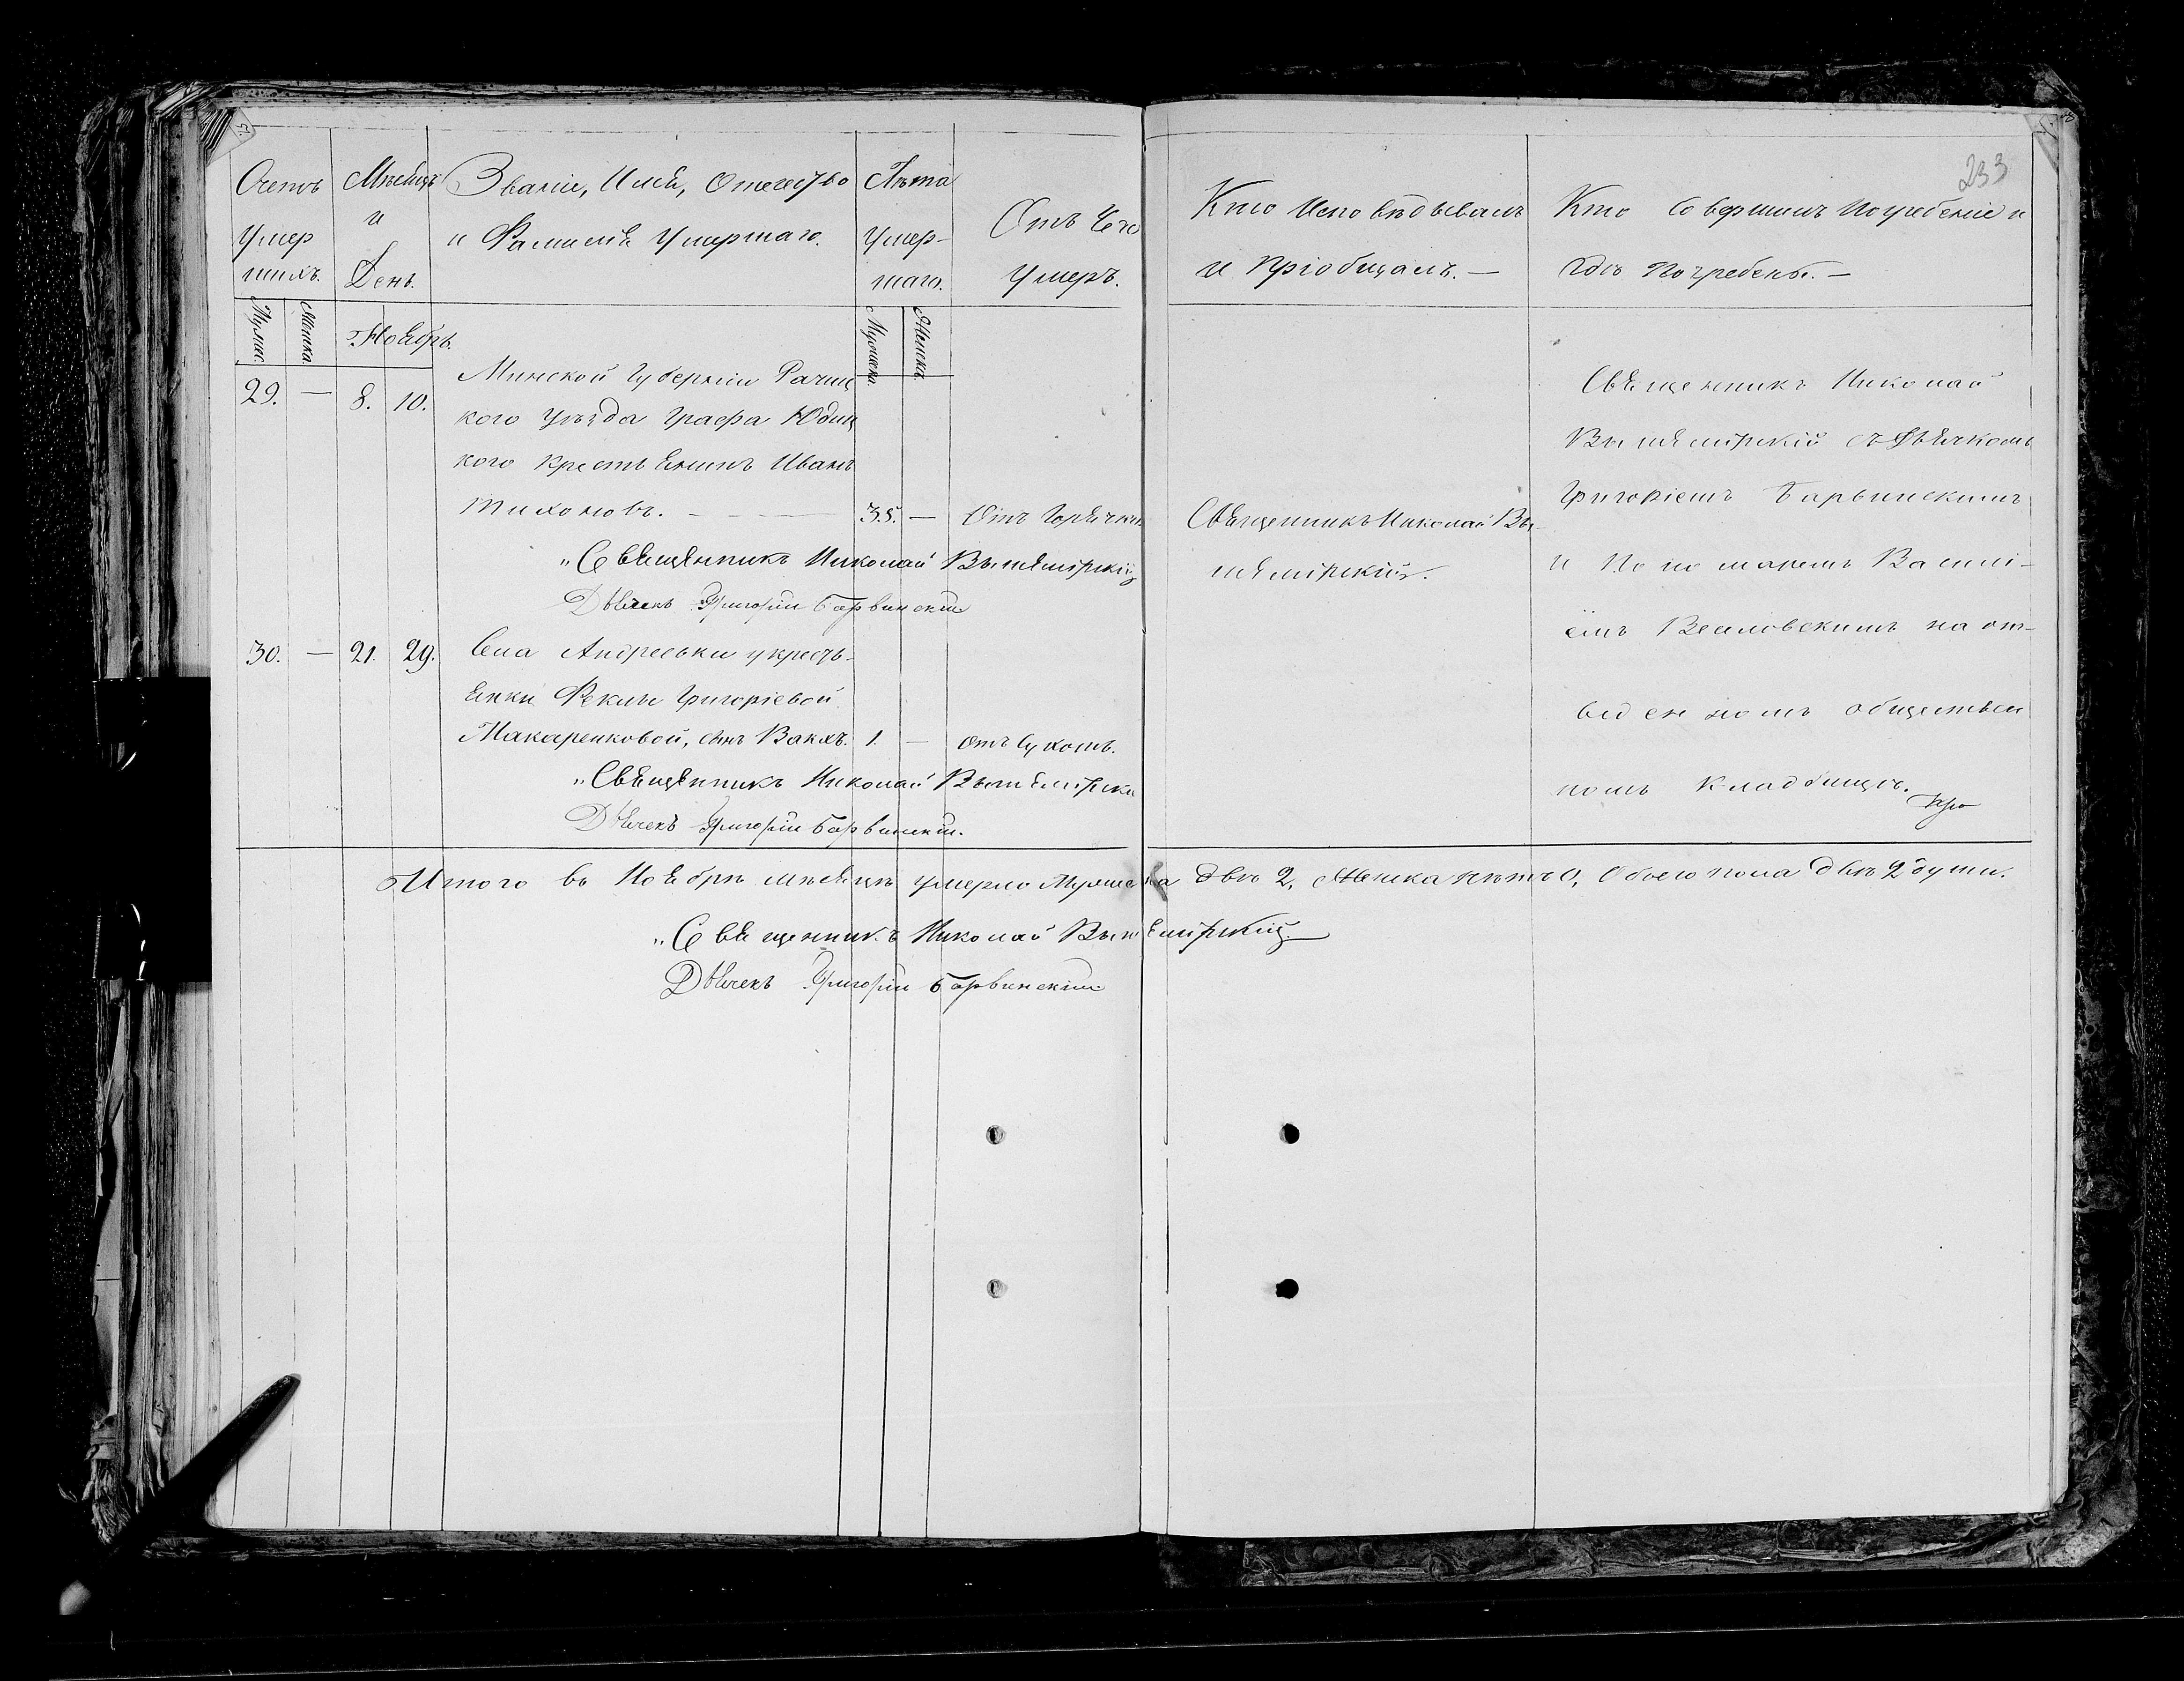 233
Счетъ умер шихъ.
Мѣсяцъ и День.
Званіе, Имя, Отечество
и Фамилія Умершаго.
Лѣта умер- шаго.
Отъ Чего умеръ.
Кто Исповѣдывалъ
и Пріобщалъ. —
Кто Совершилъ Погребеніе и
гдѣ Погребены. —
Мужес. Женска. Ноябрь. Мужеска. Женска.
29. — 8. 10.
Минской Губерніи Рачиц
кого уѣзда Графа Юдиц
кого крестьянинъ Иванъ
Тихоновъ. — 35. — Отъ Горячки
„Священникъ Николай
Дьячекъ Григорій Барвинскій
Священникъ Николай
Священникъ Николай
съ Дьячкомъ
Григоріемъ Барвинскимъ
и Пономаремъ Васили-
емъ на от-
веденномъ обществен
номъ кладбищѣ.
30. — 21. 29.
Андреевки у кресть-
янки Феклы Григоріевой
Макаренковой, сынъ Вакхъ. 1. — отъ сухотъ.
„Священникъ Николай
Дьячекъ Григорій Барвинскій.
Итого въ Ноябрѣ мѣсяцѣ умерло Мужеска двѣ 2, Женска нѣтъ 0, Обоего пола двѣ 2 души.
„Священникъ Николай
Дьячекъ Григорій Барвинскій